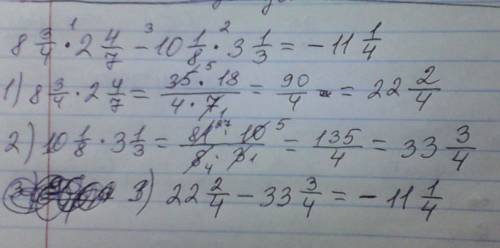 8 3/4 · 2 4/7 - 10 1/8 · 3 1/3 = - 11 1/4
1) 8 3/4 · 2 4/7 = 35 · 18 / 4 · 7 = 90/4 = 22 2/4
2) 10 1/8 · 3 1/3 = 81 · 10 / 8 · 3 = 135/4 = 33 3/4
3) 22 2/4 - 33 3/4 = - 11 1/4